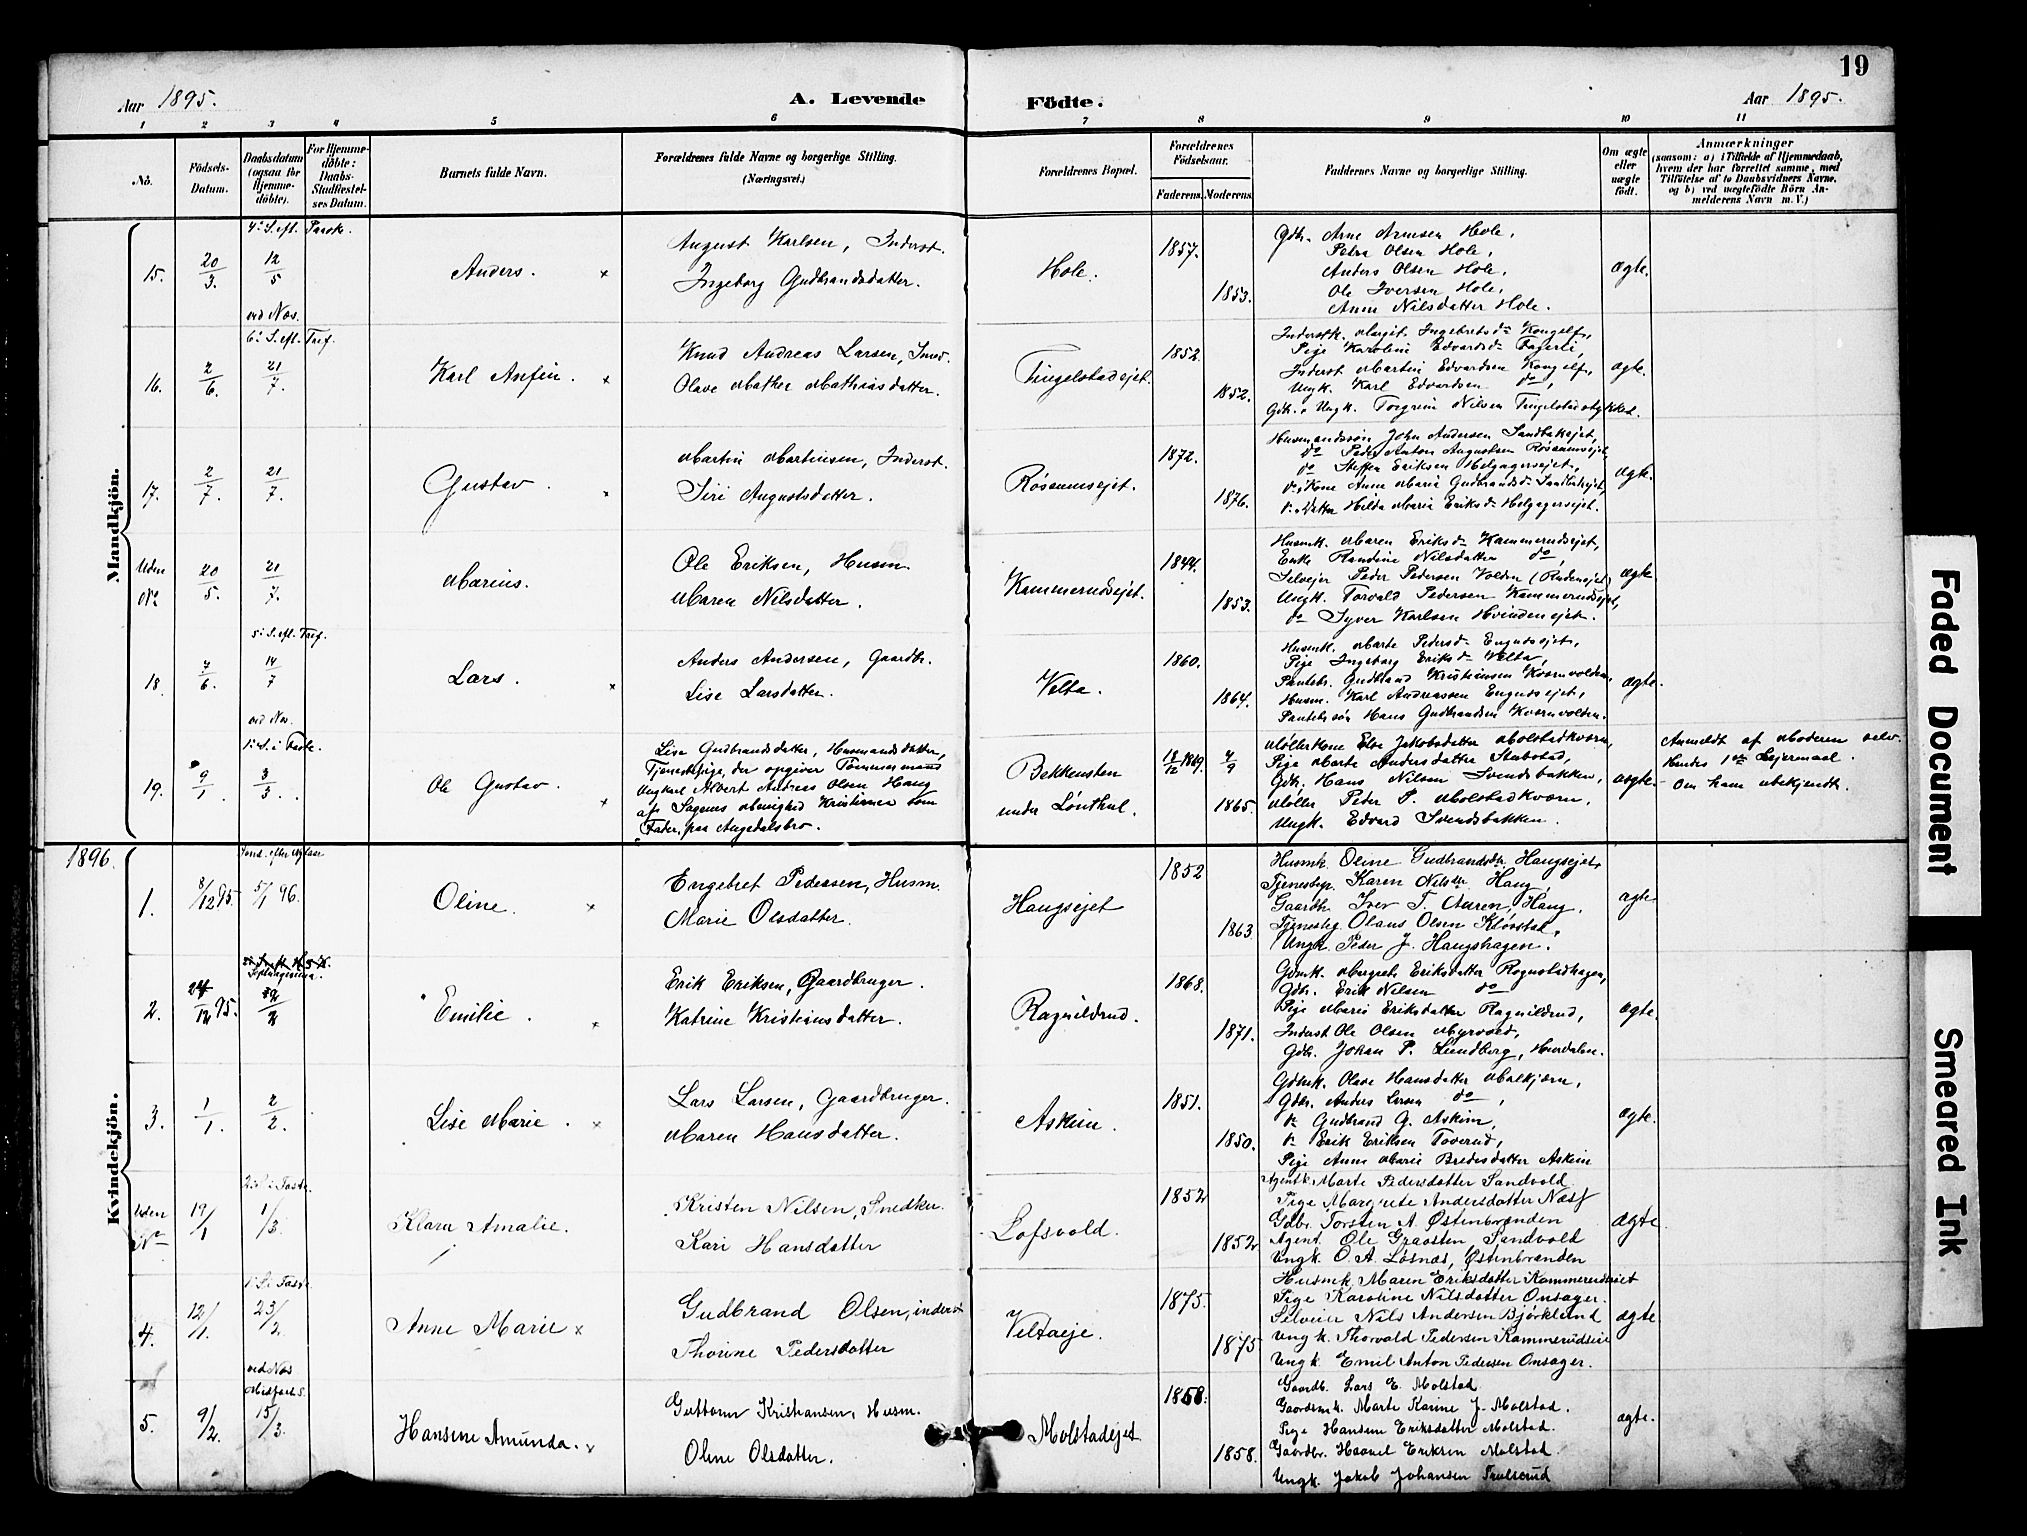 19
Aar 1895.
A. Levende Födte.
Aar 1895.
1 2 3 4 5 6 7 8 9 10 11
No.
Födsels-Datum.
Daabsdatum (ogsaa for Hjemme-döbte).
For Hjemme-döbte: Daabs-Stadfæstel-ses Datum.
Barnets fulde Navn.
Forældrenes fulde Navne og borgerlige Stilling.
(Næringsvei.)
Forældrenes Bopæl.
Forældrenes Födselsaar.
Faderens. Moderens.
Faddernes Navne og borgerlige Stilling.
Om ægte eller uægte født.
Anmærkninger
(saasom: a) i Tilfælde af Hjemmedaab,
hvem der har forrettet samme, med
Tilföielse af to Daabsvidners Navne,
og b) ved uægtefödte Börn An-
melderens Navn m. V.)
Mandkjön.
4. S. eft. Paask.
15. 20/3. 12/5 Anders. x
August Karlsen, Inderst.
Ingeborg Gudbrandsdatter.
Hole. 1857. 1853.
Gdb. Arne Arnesen Hole,
Petra Olsen Hole,
Anders Olsen Hole,
Ole Iversen Hole,
Anne Nilsdatter Hole.
ægte.
ved Næs.
6. S. eft. Tref.
16. 2/6. 21/7. Karl Anfin. x
Knud Andreas Larsen, Inod.
Olave Mathea Mathiasdatter.
Tingelstadejet. 1852. 1852.
Inderstk. Margit Ingebretsd. Kongelf,
Pige Karoline Edvardsd. Fagerli,
Inderst Martin Edvardsen Kongelf,
Ungk. Karl Edvardsen do,
Gdb. Ungk. Torgrim Nilsen Tingelstadstykket.
ægte.
17. 2/7. 21/7. Gustav. x
Martin Martinsen, Inderst.
Siri Augustsdatter.
Rösaunsejet. 1872. 1876.
Husmandssøn John Andersen Sandbakejet,
do Peder Anton Augustsen Rösaunsejet,
do Steffen Eriksen Helgagersejet,
do Kone Anne Maria Gudbrandsd. Sandbakejet,
do Datter Hilda Maria Eriksd. Helgagersejet.
ægte.
Uden No. 20/5. 21/7. Marius.
Ole Eriksen, Husm.
Maren Nilsdatter.
Kammerudsejet. 1844. 1853.
Husmk. Maren Eriksd. Kammerudsejet,
Enke Randine Nilsdatter do,
Selvejer Peder Pedersen Volden (Rudsejet)
Ungk. Torvald Pedersen Kammerudsejet,
do Syver Karlsen Hvindenejet.
ægte.
5. S. eft. Tref.
18. 7/6. 14/7 Lars. x
Anders Andersen, Gaardbr.
Lise Larsdatter.
Velta. 1860. 1864.
Husmk. Marte Pedersd. Engnesejet,
Pige Ingeborg Eriksd. Velta,
Pantebr. Gudbrand Kristiansen Kværnvolden,
Husm. Karl Andreassen Engnesejet,
Pantebr. søn Hans Gudbrandsen Kværnvolden.
ægte.
ved Næs.
1. S. i Faste.
19. 9/1. 3/3. Ole Gustav. x
Lise Gudbrandsdatter, Husmandsdatter,
Tjenestepige, der opgiver Tømmermand
Ungkarl Albert Andreas Olsen Haug
af Sagenes Menighed Kristiania som
Fader, paa Angedalsbro.
Bekkensten
under Lönthul.
18/12 1869. 4/9 1865.
Møllerkone Else Jakobsdatter Molstadkværn,
Pige Marte Andersdatter Stabstad,
Gdb. Hans Nilsen Svendsbakken,
Møller Peter P. Molstadkværn,
Ungk. Edvard Svendsbakken.
uægte.
Anmeldt af Moderen selv.
Hendes 1ste Lejermaal.
- Om ham ubekjendt.
1896.
Kvindekjön.
Sønd. efter Nytaar
1. 8/12 95. 5/1 96. Oline. x
Engebret Pedersen, Husm.
Marie Olsdatter.
Haugsejet 1852 1863.
Husmk. Oline Gudbrandsdtr. Haugsejet,
Tjenestep. Karen Nilsdtr. Haug,
Gaardb. Iver T. Aaren, Haug,
Tjenesteg. Olaus Olsen Klöovstad,
Ungk. Peder J. Haugshagen.
ægte
Septuagesima.
2. 24/12 95. 2/2 Emilie. x
Erik Eriksen, Gaardbruger.
Katrine Kristiansdatter.
Ragnildrud. 1868. 1871.
Gdmk. Margrete Eriksdatter Rognstadhagen,
Gdb. Erik Nilsen do
Pige Marie Eriksdatter Ragnildrud,
Inderst Ole Olsen Myrvold,
Gdb. Johan P. Lundberg, Hurdalen.
ægte.
3. 1/1. 2/2. Lise Marie. x
Lars Larsen, Gaardbruger.
Maren Hansdatter.
Askim. 1851. 1850.
Gdmk. Olave Hansdatter Malkjærn,
Gdb. Anders Larsen do,
do Gudbrand G. Askim,
do Erik Eriksen Toverud,
Pige Anne Marie Bredesdatter Askim
ægte.
2. S. i Faste.
Uden No 19/1 1/3. Klara Amalie.
Kristen Nilsen, Snedker.
Kari Hansdatter
Lofsvold. 1852 1852
Agentk. Marte Pedersdatter Sandvold
Pige Margrete Andersdatter Næss
Gdbr. Torsten A. Østenbranden
Agent. Ole Graosten Sandvold
Ungk. O. A. Løsnæs, Østenbranden
ægte
1. S. i Faste.
4. 12/1. 23/2. Anne Marie x
Gudbrand Olsen, inderst
Thorine Pedersdatter
Veltaeje. 1875. 1875
Husmk. Maren Eriksdatter Kammerudseiet
Pige Karoline Nilsdatter Onsager.
Selveier Nils Andersen Björklund
Ungk. Thorvald Pedersen Kammerudseie
Ungk. Emil Anton Pedersen Onsager.
ægte
ved Næs
Midfaste S.
5. 9/2. 15/3. Hansine Amunda. x
Guttorm Kristiansen, Husm.
Oline Olsdatter.
Molstadejet 1858. 1858.
Gaardb. Lars E. Molstad.
Gaardmk. Marte Karine J. Molstad.
Pige Hansine Eriksdatter Molstad.
Gaardbr. Haavel Eriksen Molstad.
Ungk. Jakob Johansen Trulserud
ægte.
Faded Document
Smeared Ink